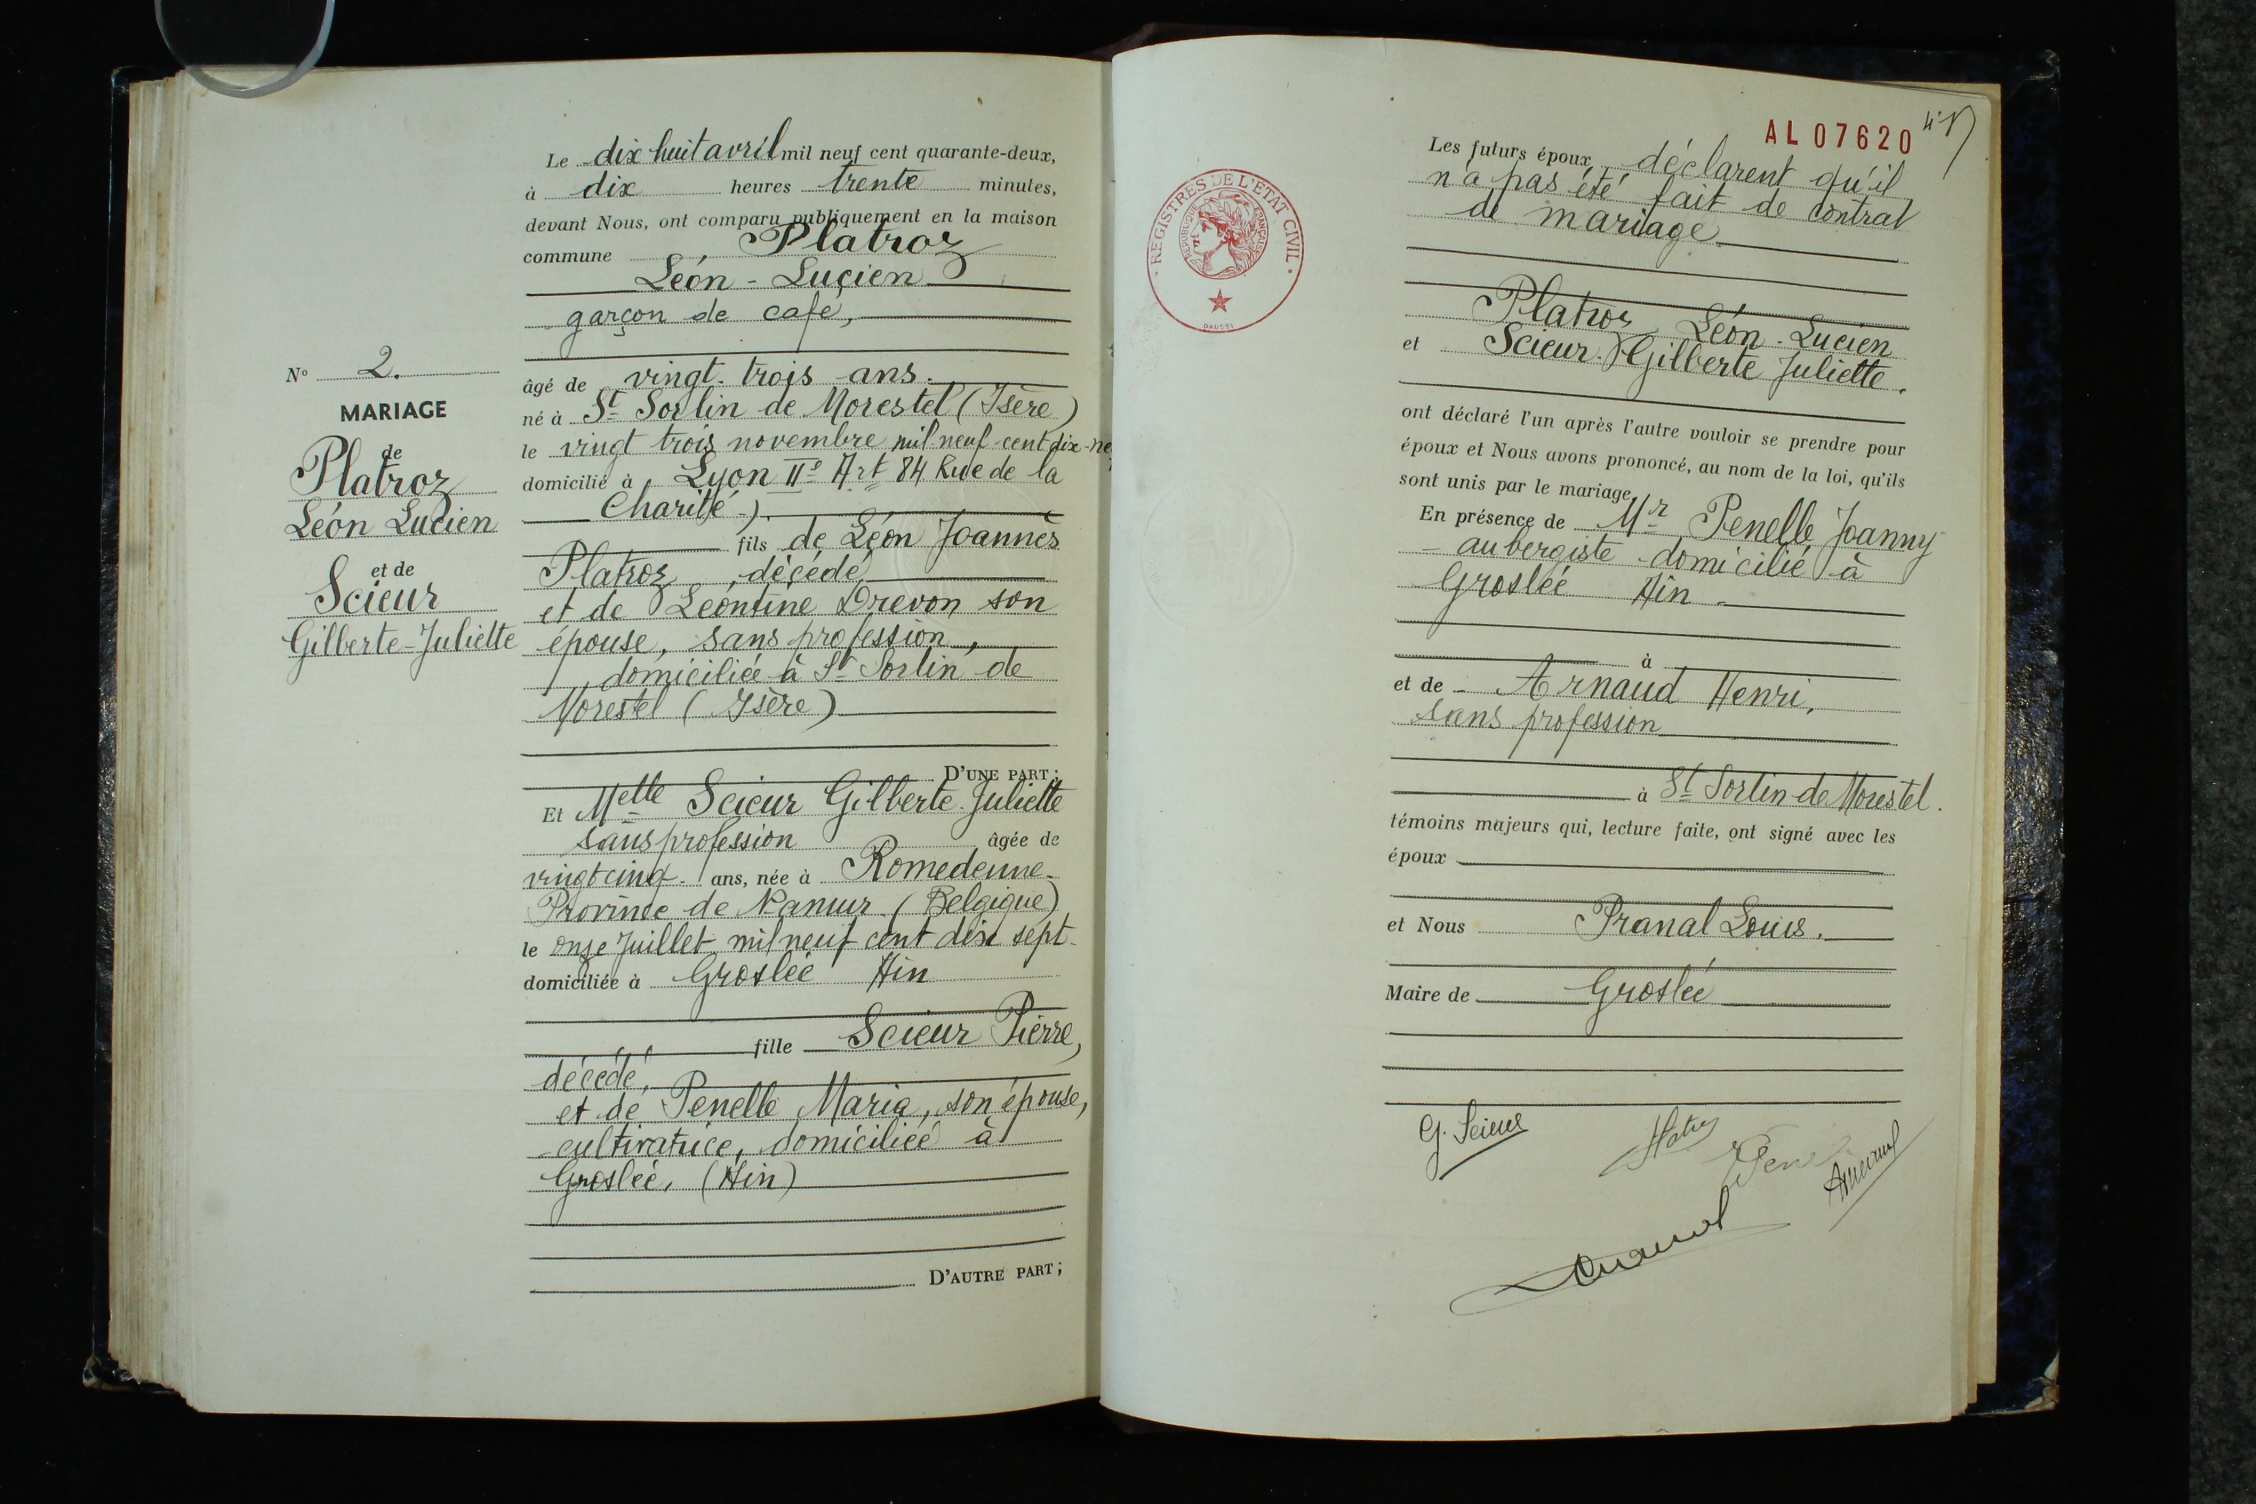 N° 2.
MARIAGE
de
Platroz
Léon Lucien
et de
Scieur
Gilberte-Juliette
Le dix huit avril mil neuf cent quarante-deux,
à dix heures trente minutes,
devant Nous, ont comparu publiquement en la maison
commune Platroz
Léon - Lucien
garçon de café,
âgé de vingt trois ans.
né à St Sorlin de Morestel (Isère)
le vingt trois novembre mil neuf cent dix-ne
domicilié à Lyon IIe Art 84 Rue de la
Charité)
fils de Léon Joannès
Platroz décédé
et de Léontine Drevon son
épouse, sans profession,
domiciliée à St Sorlin de
Morestel (Isère)
D'UNE PART;
Et Melle Scieur Gilberte Juliette
sans profession âgée de
vingt cinq ans, née à Romedenne
Province de Namur (Belgique)
le onze Juillet mil neuf cent dix sept
domiciliée à Groslée Ain
fille Scieur Pierre,
décédé,
et de Penelle Maria, son épouse,
cultivatrice, domiciliée à
Groslée, (Ain)
D'AUTRE PART;
AL 07620
REGISTRES DE L'ETAT CIVIL
REPUBLIQUE FRANÇAISE
DAUSSI
Les futurs époux déclarent qu'il
n'a pas été fait de contrat
de mariage
Platroz Léon - Lucien
et Scieur Gilberte Juliette.
ont déclaré l'un après l'autre vouloir se prendre pour
époux et Nous avons prononcé, au nom de la loi, qu'ils
sont unis par le mariage
En présence de Mr Penelle Joanny
aubergiste domicilié à
Groslée Ain
à
et de Arnaud Henri,
sans profession
à St Sorlin de Morestel.
témoins majeurs qui, lecture faite, ont signé avec les
époux
et Nous Pranal Louis.
Maire de Groslée
G. Scieur